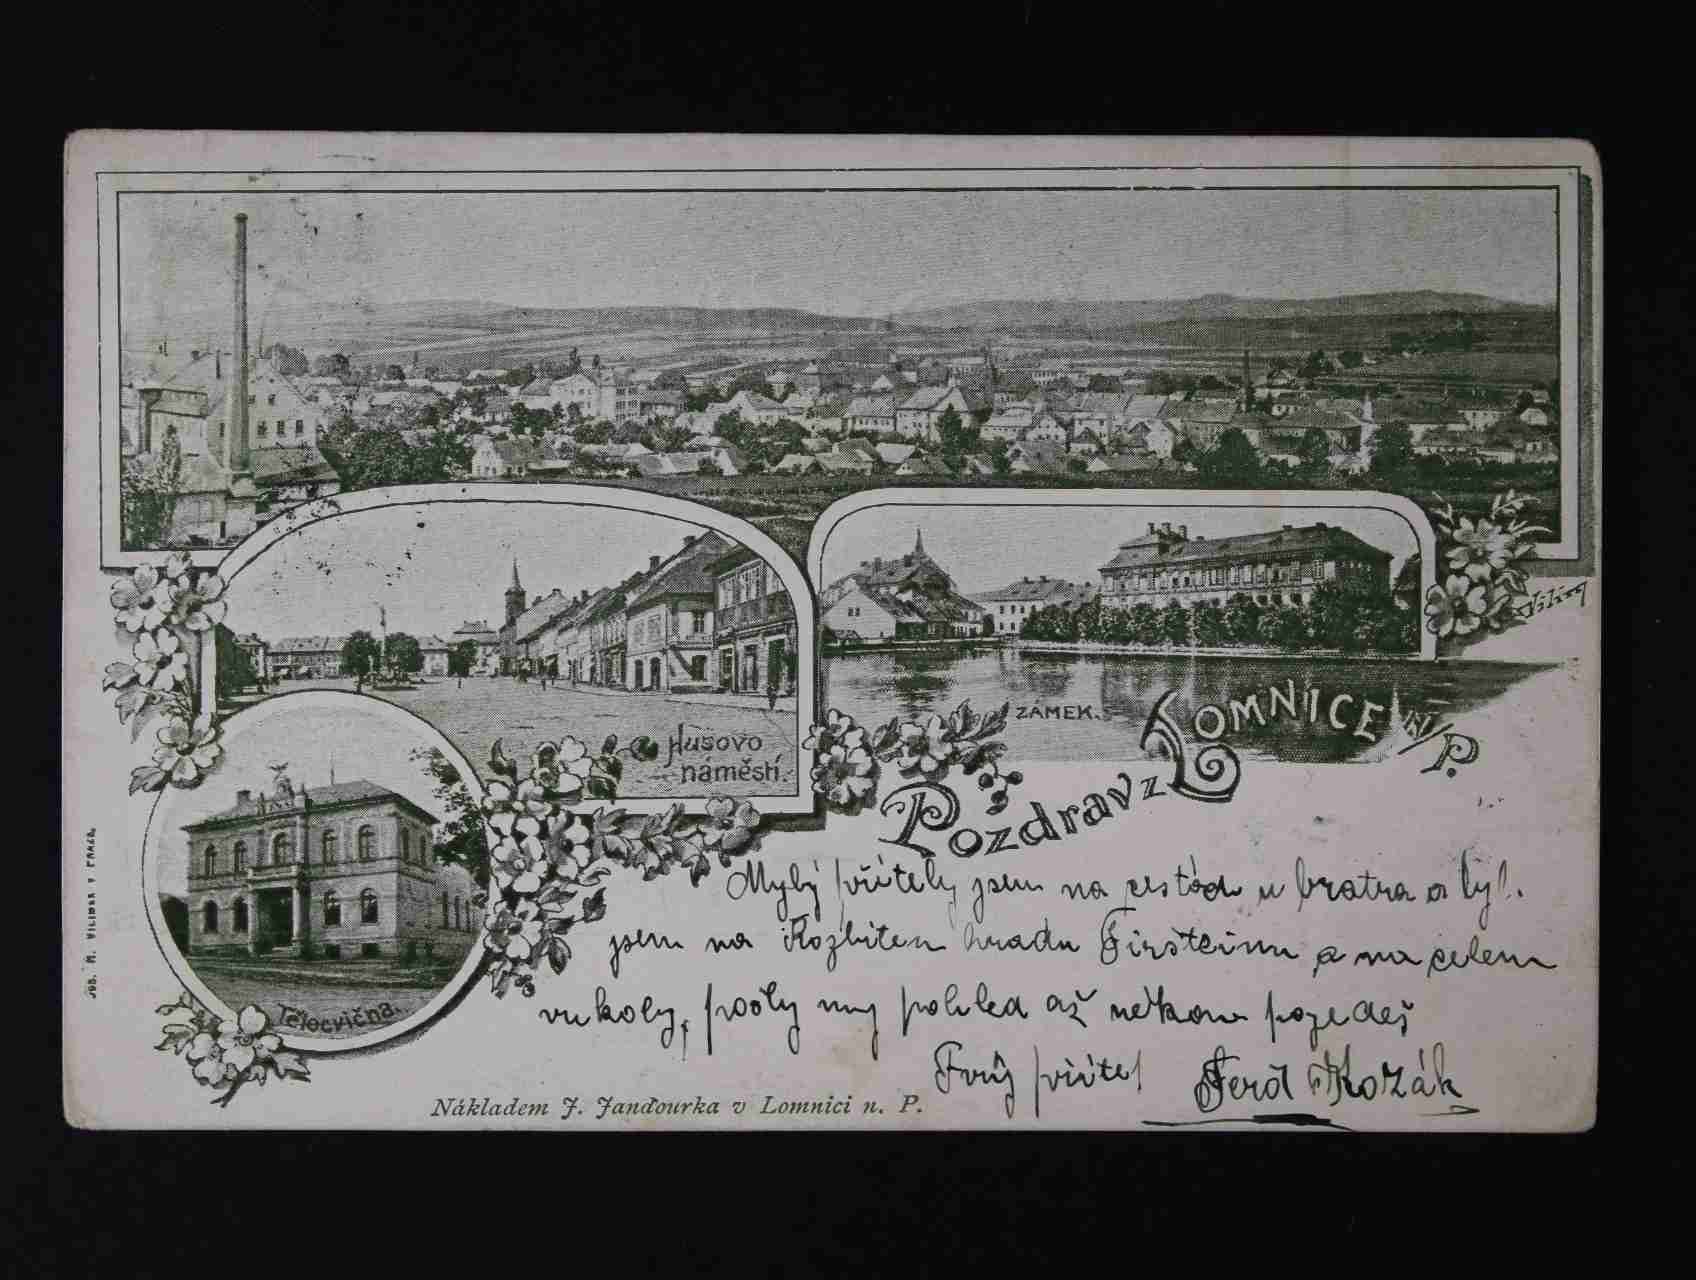 Vilím
Husovo
náměstí.
ZÁMEK.
Pozdrav z LOMNICE N/P.
Tělocvična.
JOS. R. VILÍMEK V PRAZE.
Mylý přítely jsem na cestách u bratra a
jsem na Rozbitem hradu a na celem
vukoly, pošly my pohled až někam pojedeš
Tvůj přítel Ferd Kozák
Nákladem J. Janďourka v Lomnici n. P.